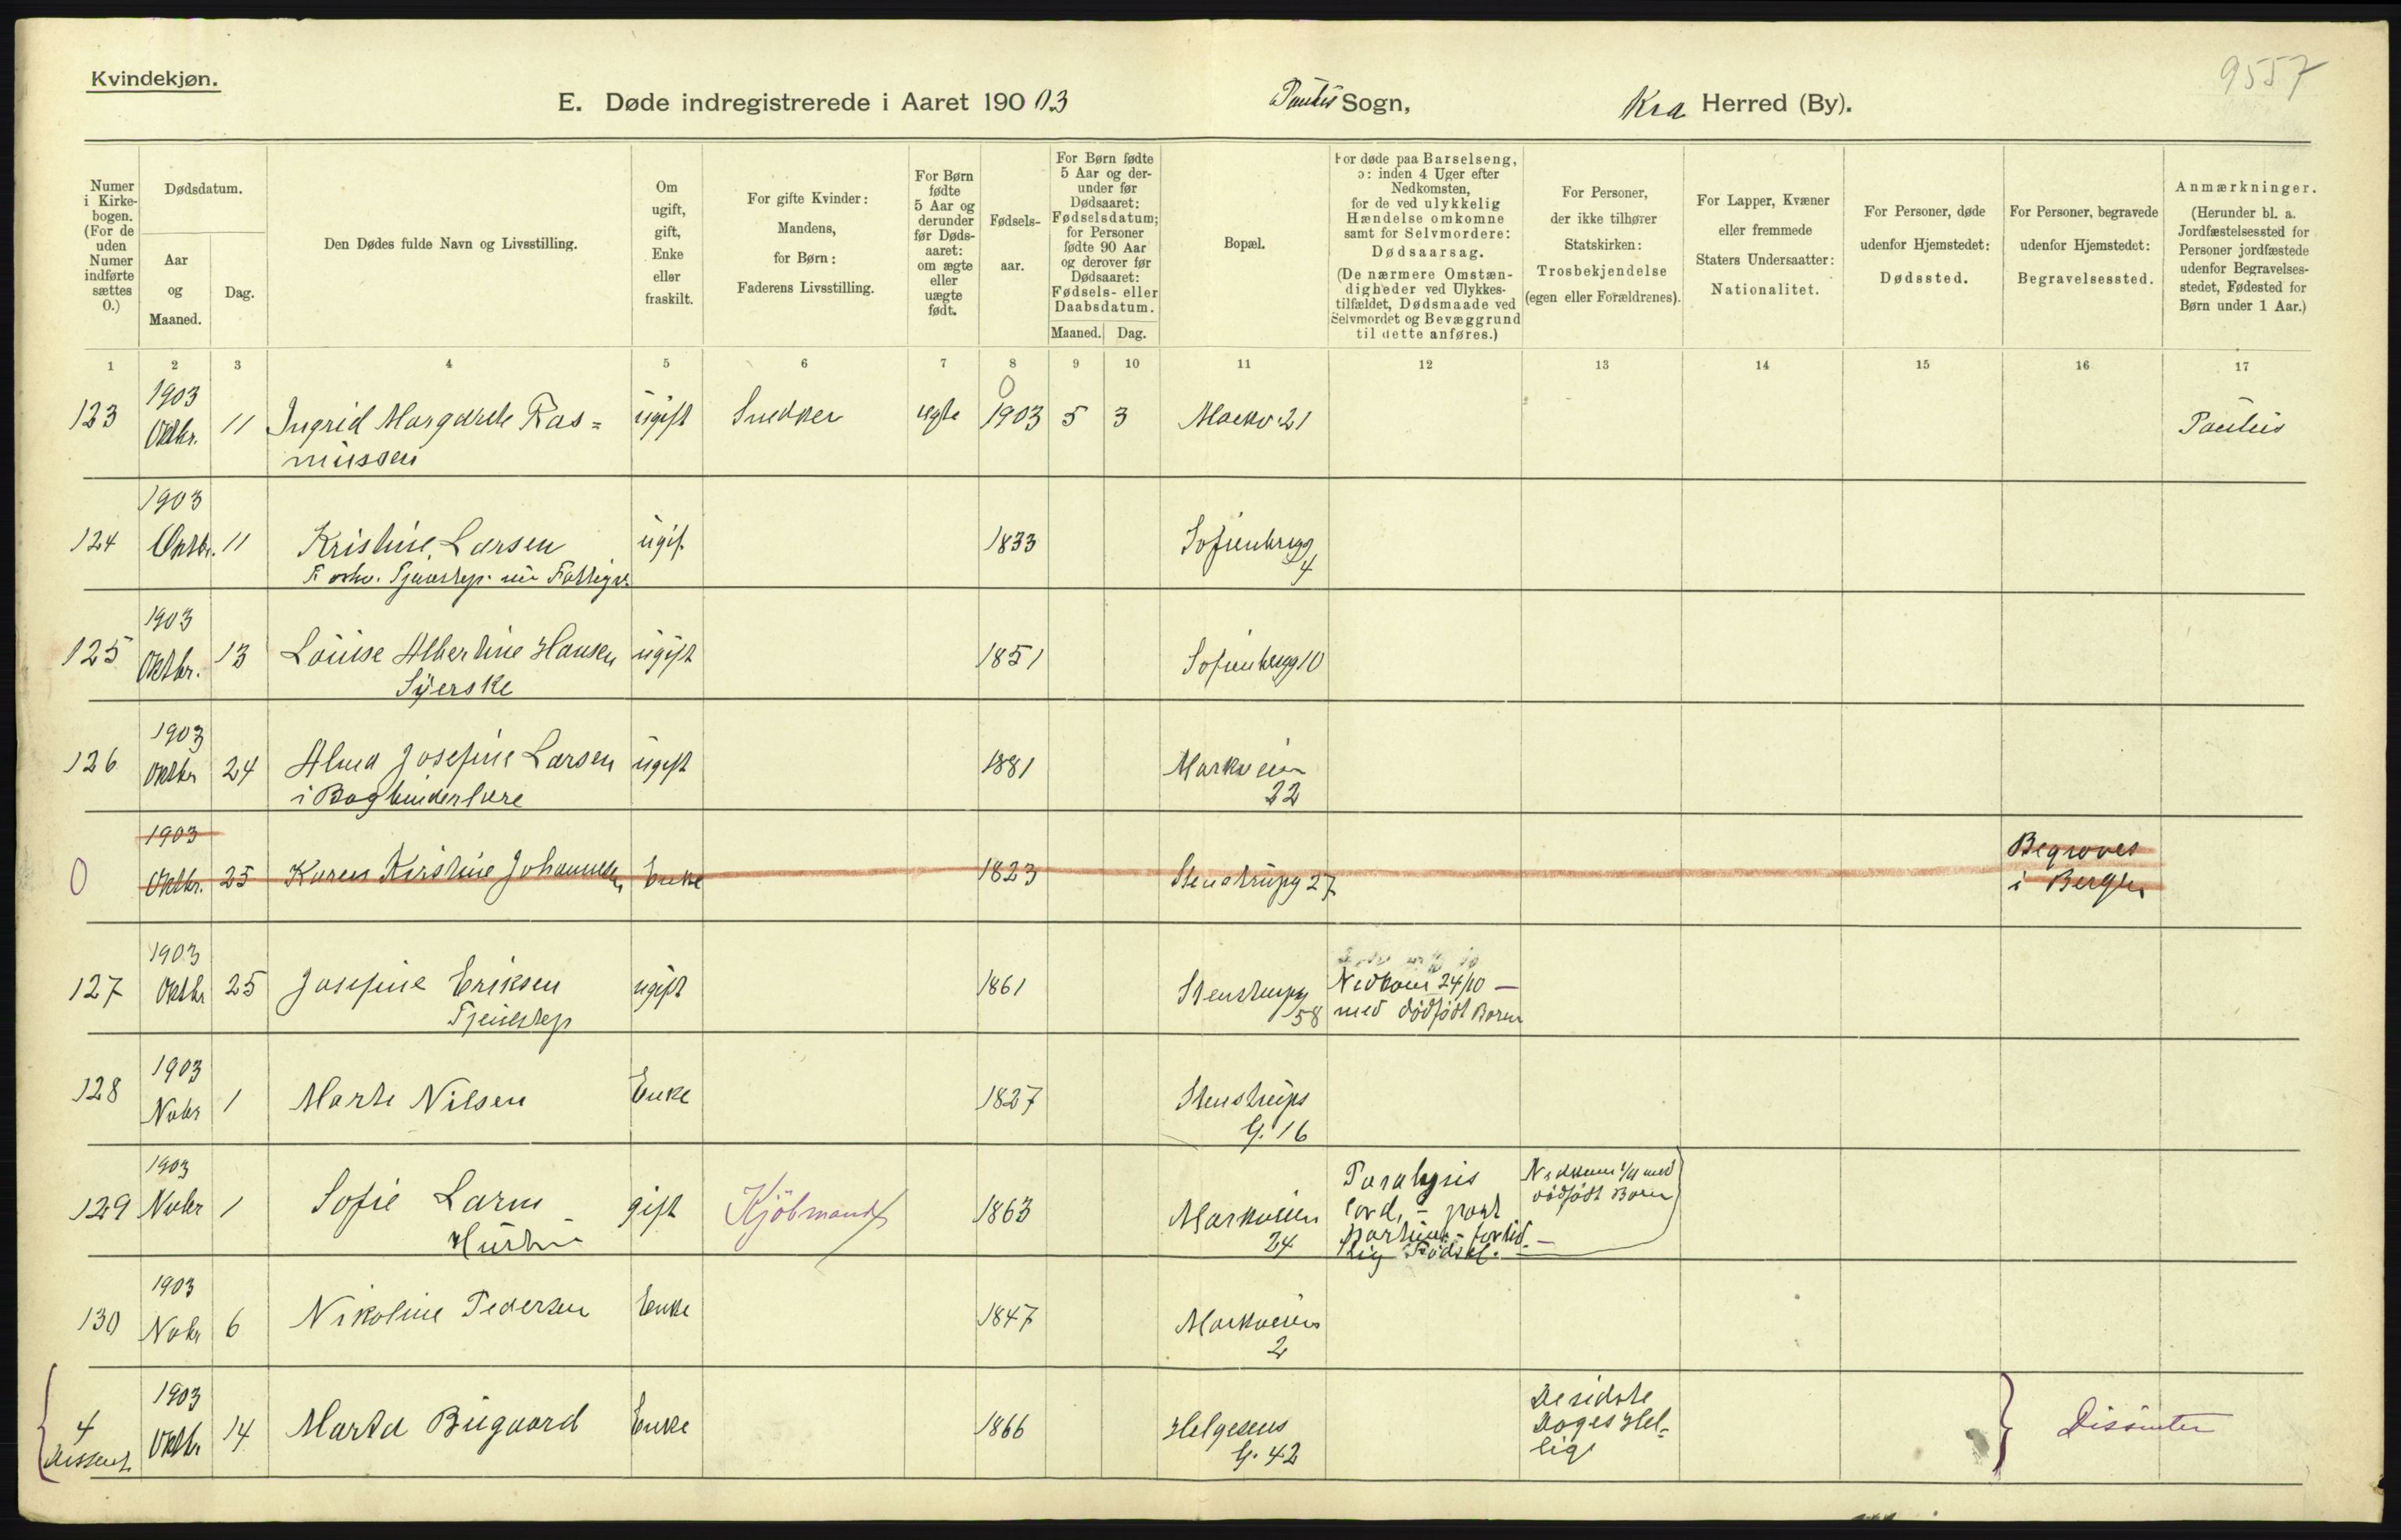 Kvindekjøn.
9557
E. Døde indregistrerede i Aaret 190 03 Paulus Sogn, Kra Herred (By).
Numer i Kirkebogen. (For de uden Numer indførte sættes O.)
Dødsdatum.
Aar og Maaned.
Dag.
Den Dødes fulde Navn og Livsstilling.
Om ugift, gift, Enke eller fraskilt.
For gifte Kvinder: Mandens, for Børn: Faderens Livsstilling.
For Børn fødte 5 Aar og derunder før Dødsaaret: om ægte eller uægte født.
Fødselsaar.
For Børn fødte 5 Aar og derunder før Dødsaaret: Fødselsdatum; for Personer fødte 90 Aar og derover før Dødsaaret: Fødsels- eller Daabsdatum.
Maaned. Dag.
Bopæl.
For døde paa Barselseng, ɔ: inden 4 Uger efter Nedkomsten, for de ved ulykkelig Hændelse omkomne samt for Selvmordere: Dødsaarsag. (De nærmere Omstændigheder ved Ulykkestilfældet, Dødsmaade ved Selvmordet og Bevæggrund til dette anføres.)
For Personer, der ikke tilhører Statskirken: Trosbekjendelse (egen eller Forældrenes).
For Lapper, Kvæner eller fremmede Staters Undersaatter: Nationalitet.
For Personer, døde udenfor Hjemstedet: Dødssted.
For Personer, begravede udenfor Hjemstedet: Begravelsessted.
Anmærkninger. (Herunder bl. a. Jordfæstelsessted for Personer jordfæstede udenfor Begravelsesstedet, Fødested for Børn under 1 Aar.)
1 2 3 4 5 6 7 8 9 10 11 12 13 14 15 16 17
1903 0
123 Oktbr. 11 Ingrid Margarete Ras= ugift Snedker ægte 1903 5 3 Markv 21 Paulus
mussen
1903
124 Oktbr. 11 Kristine Larsen ugif. 1833 Sofienbergg
4
Forhv. Tjenestep. nu Fattigv.
1903
125 Oktbr. 13 Louise Albertine Hansen ugift 1851 Sofienbergg 10
Syerske
1903
126 Oktbr 24 Alma Josefine Larsen ugift 1881 Markveien
i Bogbinderlære 22
1903
0 Oktbr. 25 Karen Kirstine Johannesen Enke 1823 Stenstrupg 27 Begraves
i Bergen
1903
127 Oktbr 25 Josefine Eriksen ugift 1861 Stenstrupg Nedkom 24/10 —
Tjenestep 58 med dødfødt Barn
1903
128 Nobr 1 Marte Nilsen Enke 1827 Stenstrups
G. 16
1903
129 Nobr 1 Sofie Larm gift Kjöbmand 1863 Markveien
Hustru 24
Paralysis
cord, - post
partum - fortid.
lig Fødsel.
Nedkom 1/11 med
dødfødt Barn
1903
130 Nobr 6 Nikoline Pedersen Enke 1847 Markveien
2
1903
4 Oktbr 14 Marta Bugaard Enke 1866 Helgesens
Dissent. G. 42
De sidste
Dages Hel=
lige
Dissenter